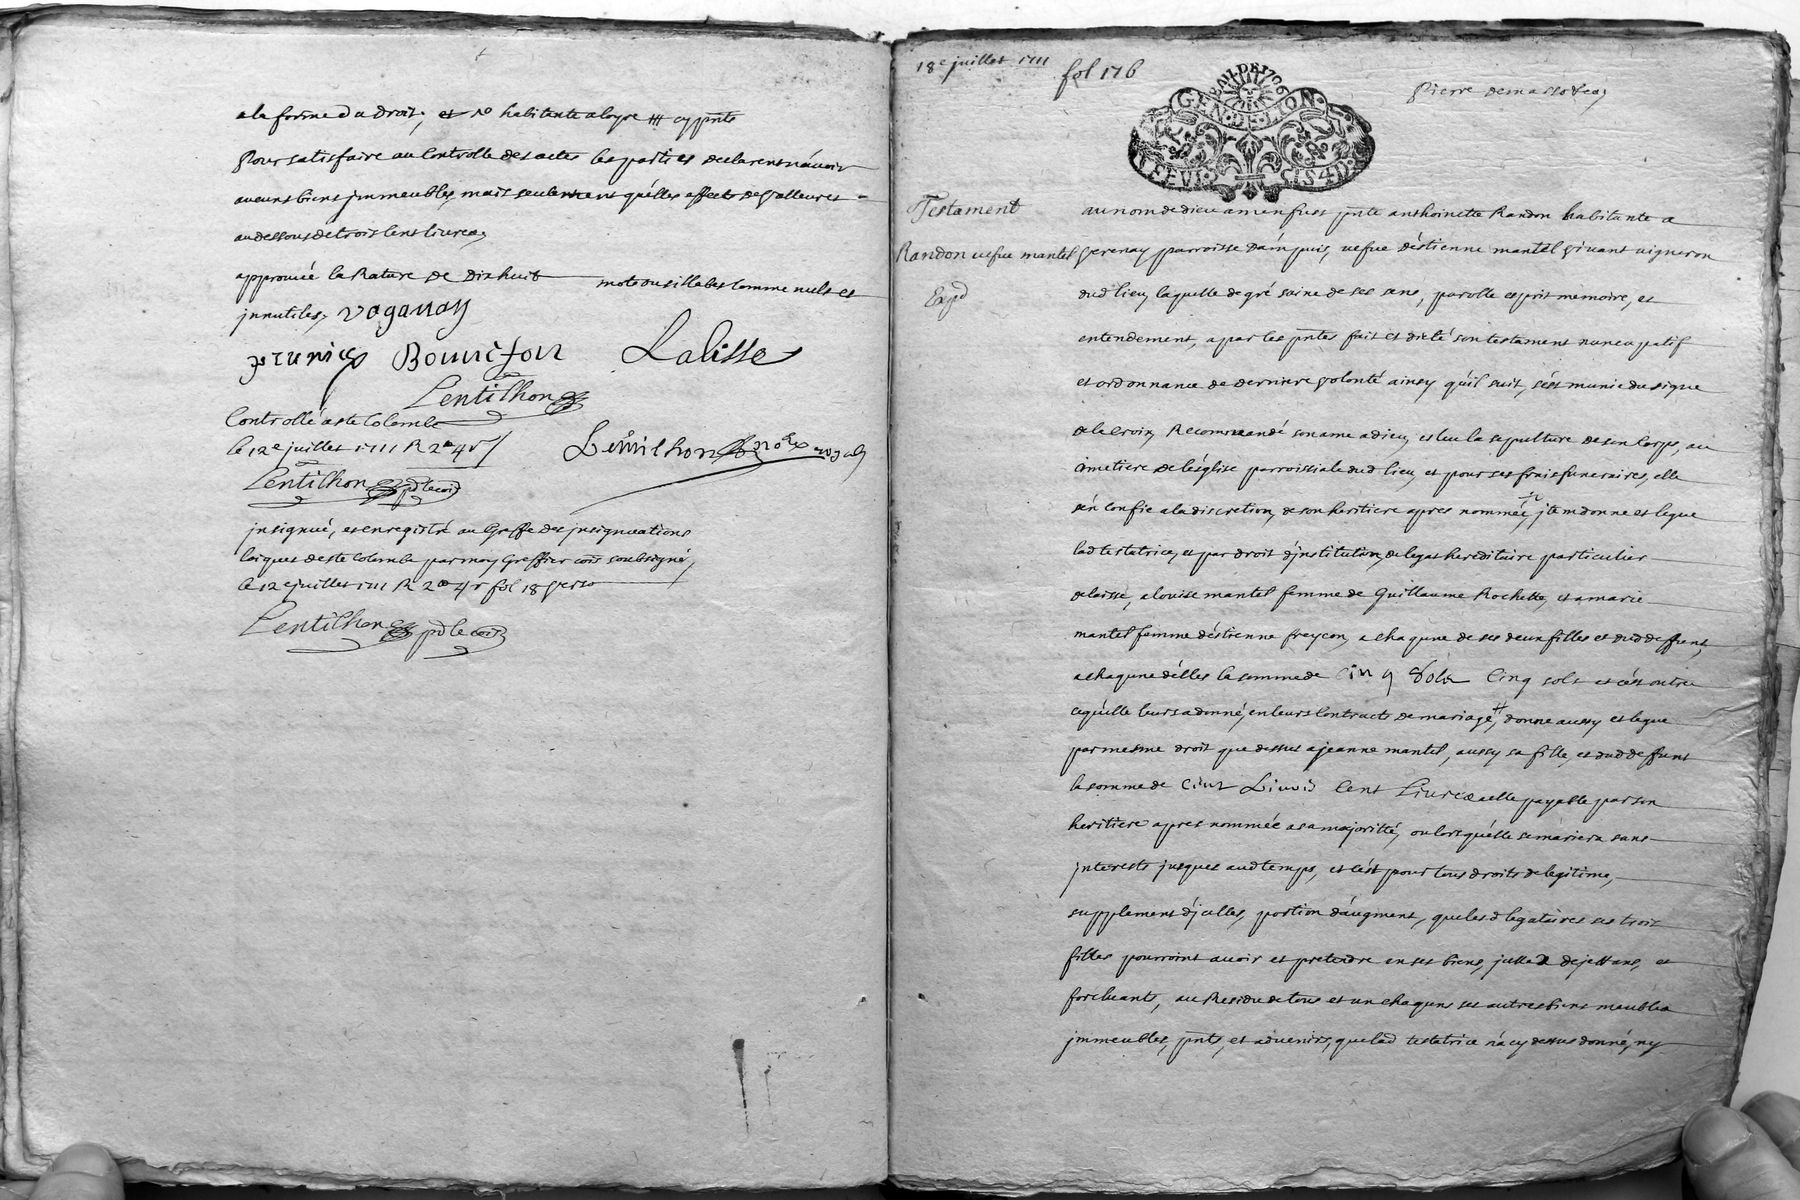 a la forme du droit, et no habitante a loyre ### cy pnte
Pour satisfaire au Controlle des actes les parties declarent n'avoir
aucuns biens jmmeubles, mais seulement quelles effects de Valleur et
audessous de trois Cens livres,
approuvée la Rature de dix huit mots ou sillabes Comme nuls et
jnnutiles, vaganay
prunier Lalisse
Lentilhon
Controllé a ste Colombe
le 12e juillet 1711 R 2# 4s
Lentilhon Lentilhon nore royal
Lentilhon pd le coñ
jnsignué, et enregistré au Greffe des jnsignuations
laiques de ste Colombe par moy Greffier coñ soubsigné,
le 12e juillet 1711 R 2# 4s fol 18 Verso
Lentilhon pd le coñ
18e juillet 1711 fol 176
Pierre
GEN. DE LION.
Testament
Randon vefue mantel
Expd
au nom de dieu amen fust pnte anthoinette Randon habitante a
Verenay parroisse d'ampuis, vefue d'estienne mantel Vivant vigneron
dud lieu, laquelle de gré saine de ses sens, parolle esprit memoire, et
entendement, a par ces pntes fait et dicté son testament nuncupatif
et ordonnance de derniere Volonté ainsy qu'il suit, s'est munie du signe
de la croix, Recommandé son ame a dieu, esleu la sepulture de son Corps, au
cimetiere de l'esglise parroissiale dud lieu, et pour ses frais funeraires, elle
s'en Confie a la discretion, de son heritiere apres nommée, jtem donne et legue
lad testatrice, et par droit d'jnstitution, de legat hereditaire particulier
delaisse, a louise mantel femme de Guillaume Rochette, et a marie
mantel femme d'estienne freycon, a chaqune de ses deux filles et dud deffunt,
a chaqune d'elles la somme de Cinq Sols Cinq sols et c'est outre
ce qu'elle leurs a donné, en leurs Contracts de mariage, donne aussy et legue
par mesme droit que dessus a jeanne mantel, aussy sa fille, et dud deffunt
la somme de Cent Livres Cent Livres a elle payable par son
heritiere apres nommée a sa majoritté, ou lors qu'elle se mariera sans
jnterests jusques aud temps, et c'est pour tous droits de legitime,
supplement d'jcelles, portion d'augment, que lesd legataires ses trois
filles pourroint avoir et pretendre en ses biens, jcelles dejettans, et
forcluants, au Residu de tous et un chaquns ses autres biens meubles
jmmeubles, pnts, et advenirs, que lad testatrice n'a cy dessus donné, ny